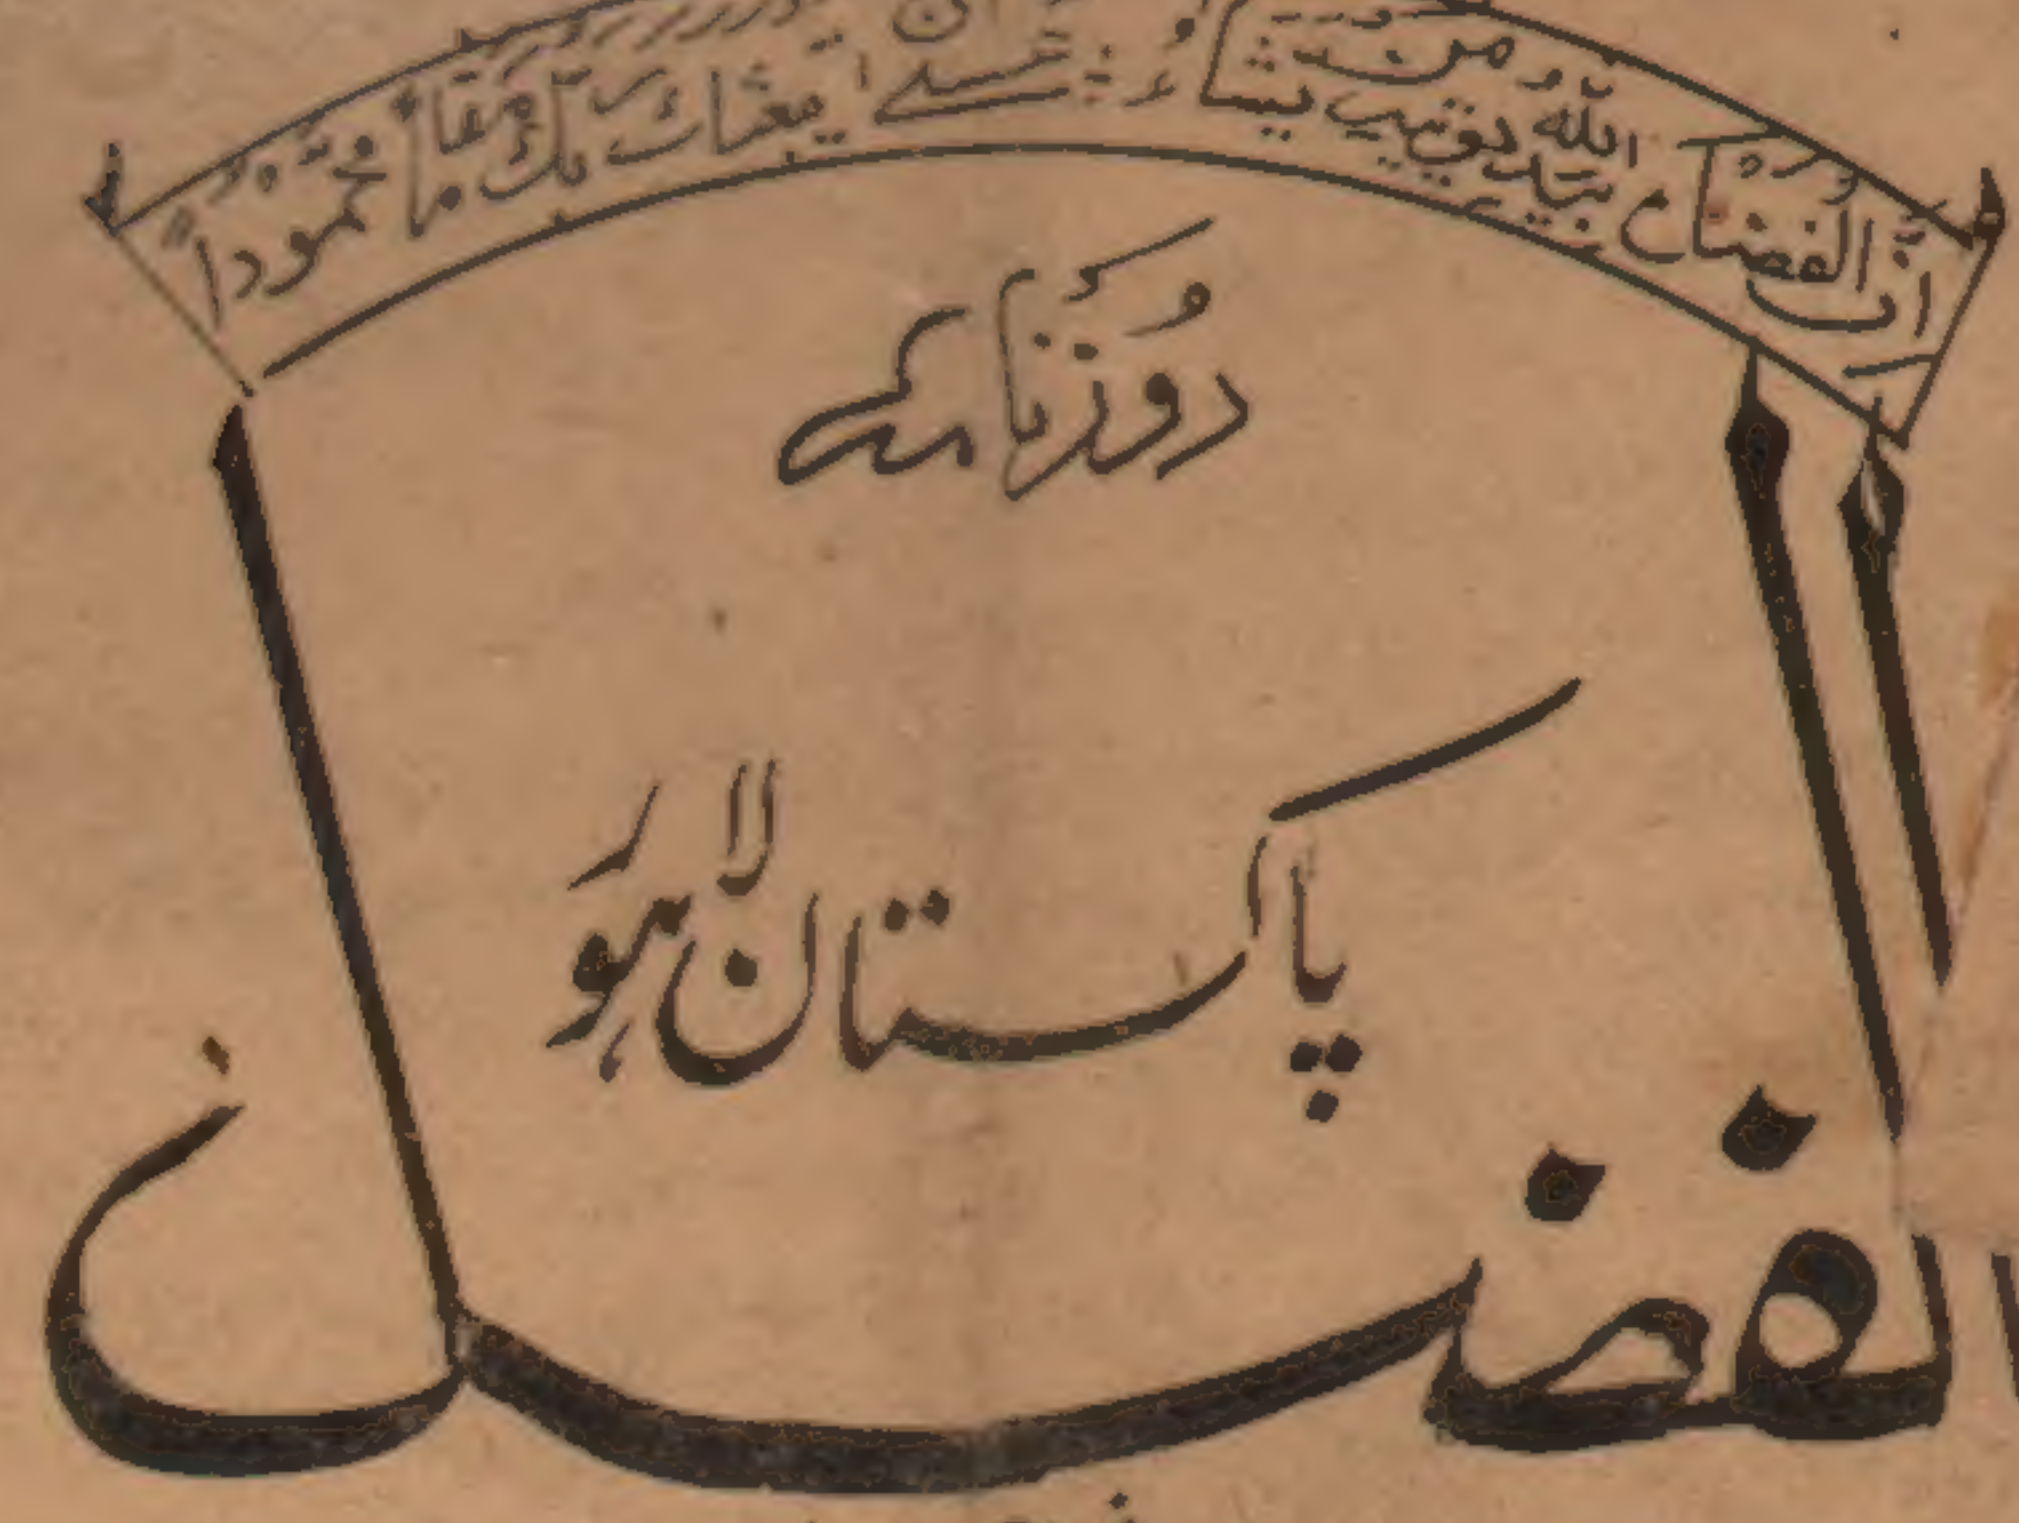 ان الفضل بيد الله يؤتيه من يشاء عسى ان يبعثك ربك مقاما محمودا
روزنامہ
پاکستان لاہور
الفضل